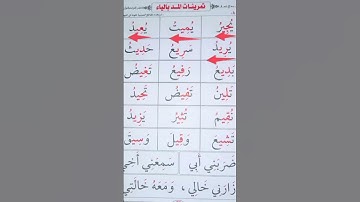 تمرينات المد بالياء
يُجِيرُ يُمِيتُ يُعِيدُ
يُرِيدُ سَرِيعُ حَدِيثَ
بَدِيعُ رَفِيعُ تَغِيضُ
تَلِينُ تَفِيضُ تَجِيدُ
نُقِيمُ نُثِيرُ يَزِيدُ
تَشِيعَ وَقِيلَ وَسِيقَ
ضَرَبَنِي أَبِي سَمِعَنِي أَخِي
زَارَنِي خَالِي ، وَمَعَهُ خَالَتِي